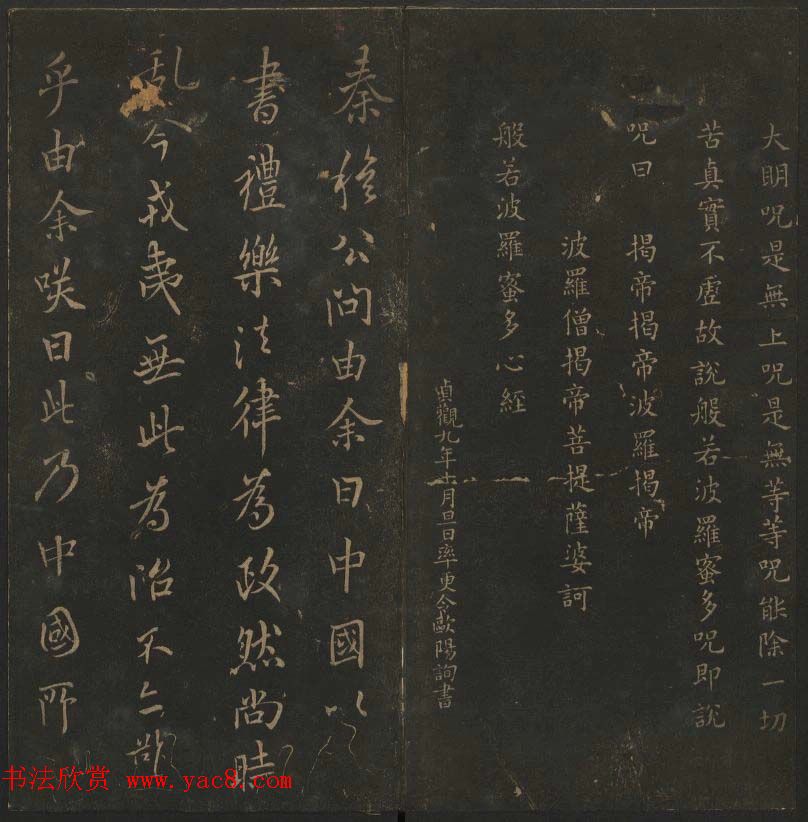 大明呪是無上呪是無等等呪能除一切
苦真實不虛故說般若波羅蜜多呪即說
呪曰 揭帝揭帝波羅揭帝
波羅僧揭帝菩提薩婆訶
般若波羅蜜多心經
貞觀九年十月旦日率更令歐陽詢書
秦穆公問由余曰中國以
書禮樂法律為政然尚時
乱今戎夷無此為治不亦難
乎由余咲曰此乃中國所
书法欣赏 www.yac8.com